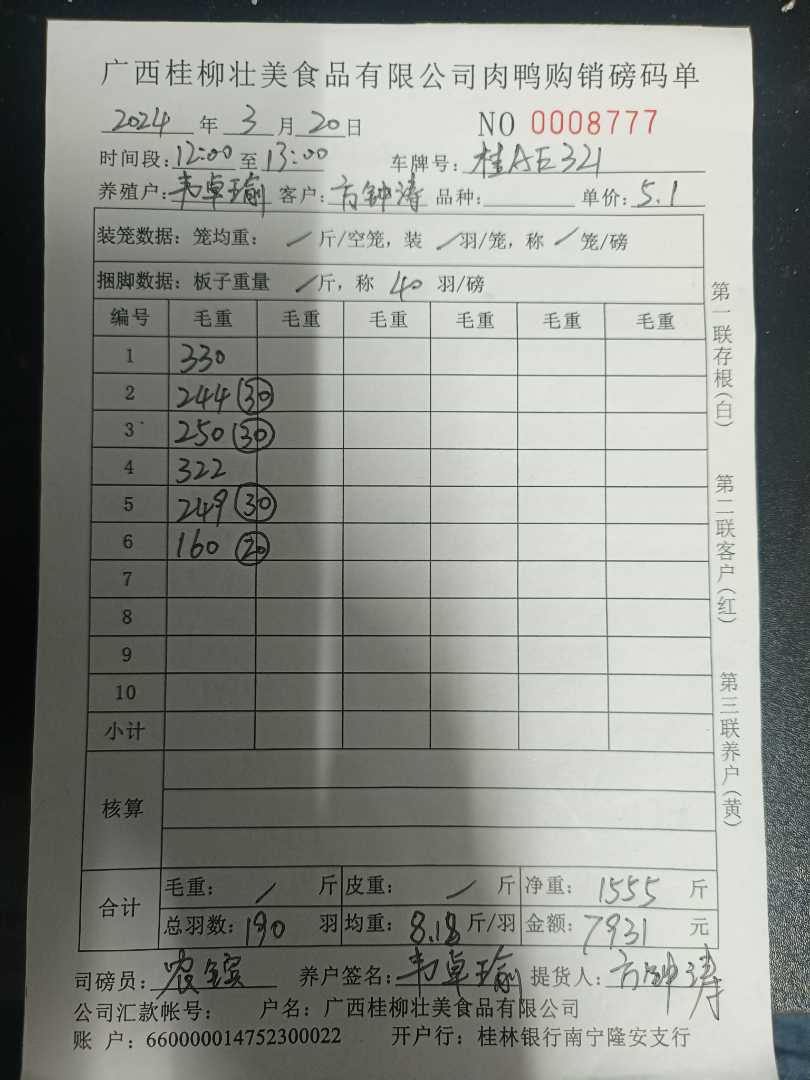 广西桂柳壮美食品有限公司肉鸭购销磅码单
2024 年 3 月 20 日 NO 0008777
时间段: 12:00 至 13:00 车牌号: 桂AE321
养殖户: 韦卓瑜 客户: 方钟涛 品种: 单价: 5.1
装笼数据: 笼均重: / 斤/空笼, 装 / 羽/笼, 称 / 笼/磅
捆脚数据: 板子重量 / 斤, 称 40 羽/磅
编号 毛重 毛重 毛重 毛重 毛重 毛重
1 330
2 244 (30)
3 250 (30)
4 322
5 249 (30)
6 160 (20)
7
8
9
10
小计
核算
合计 毛重: / 斤 皮重: / 斤 净重: 1555 斤
总羽数: 190 羽 均重: 8.18 斤/羽 金额: 7931 元
司磅员: 农 养户签名: 韦卓瑜 提货人: 方钟涛
公司汇款帐号: 户名: 广西桂柳壮美食品有限公司
账 户: 660000014752300022 开户行: 桂林银行南宁隆安支行
第一联存根(白)
第二联客户(红)
第三联养户(黄)